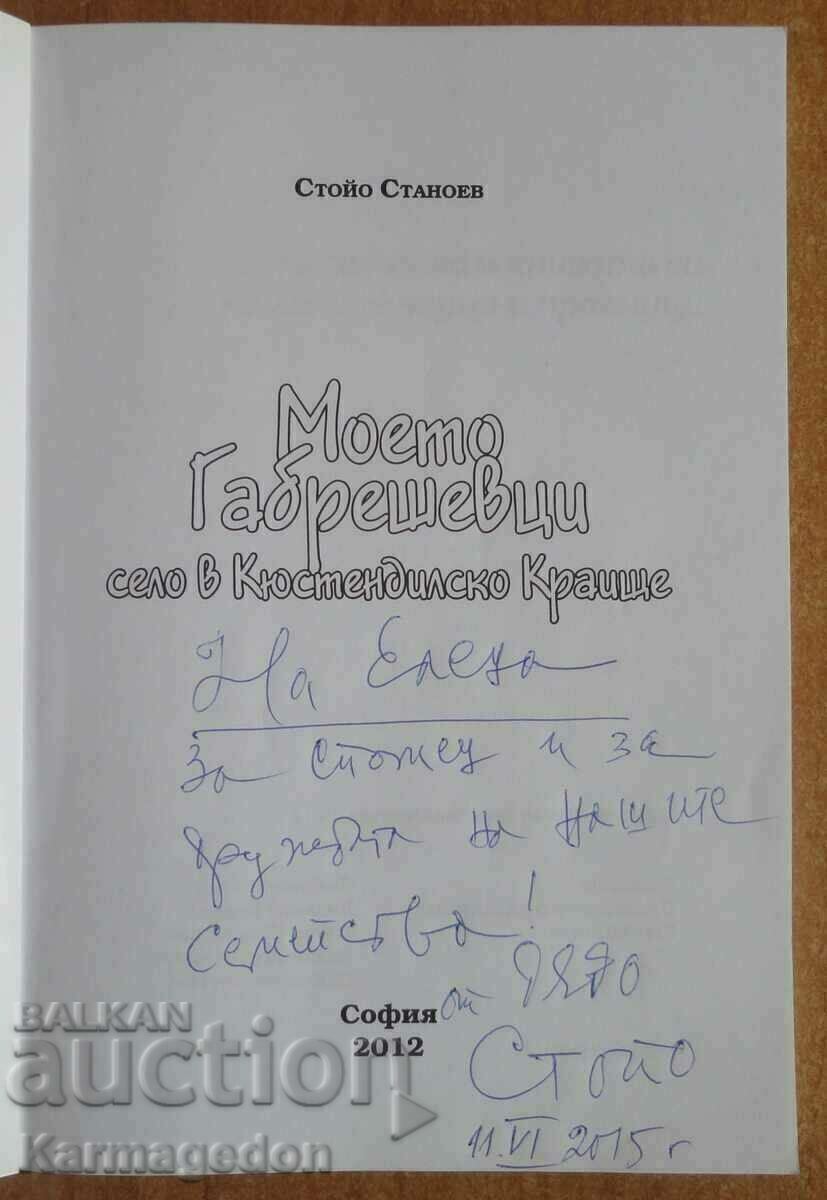 Стойо Станоев
Моето
Габрешевци
село в Кюстендилско Краище
На Елена
За спомен и за
дружбата на нашите
семейства!
от дядо
Стойо
11.VI 2015 г
София
2012
BALKAN
auction
Karmagedon